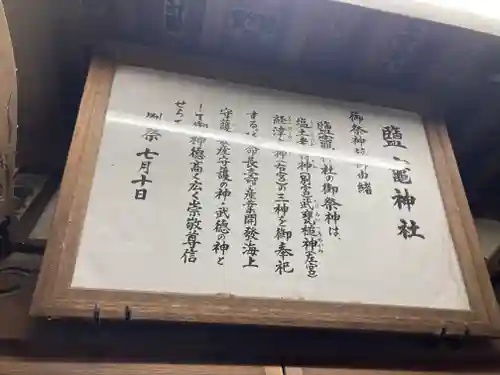 鹽竈神社
御祭神 御由緒
鹽竈 社の御祭神は、
塩土老 神(別宮)武甕槌神(左宮)
経津主神(右宮)の三神を御奉祀
する。 命長 産業開發海上
守護 産守護の神・武徳の神と
して 御神徳高く広く崇敬尊信
せら
例祭 七月十日